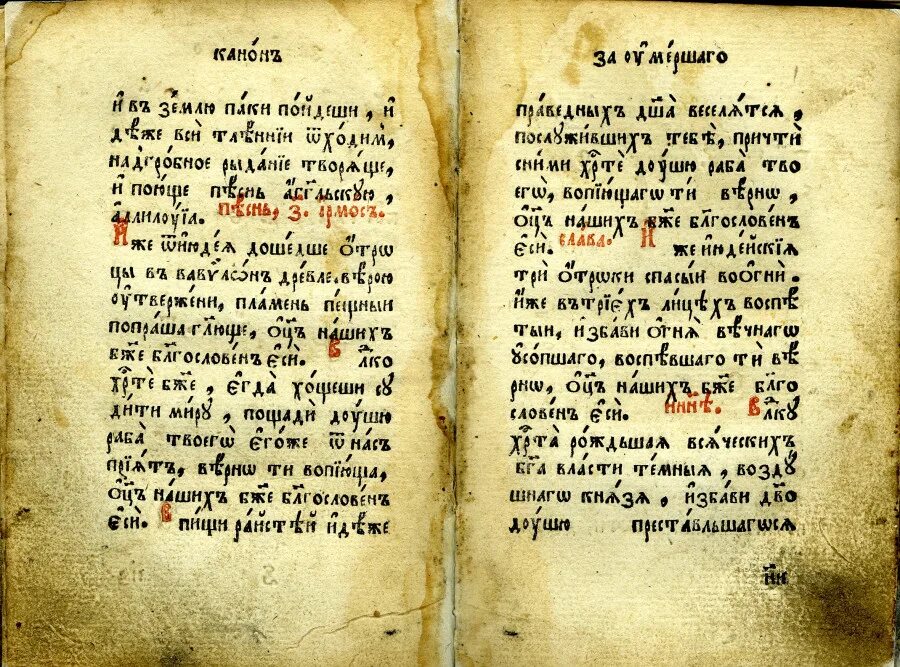 канѡ́нъ
и҆ въ зе́млю па́ки по́йдеши , и҆
дѣ́же всѝ тлѣ́нніи ѿхо́димъ,
надгро́бное рыда́нїе творѧ́ще,
и҆ пою́ще пѣ́снь а҆́гг҃льскую ,
а҆ллилоу́їꙗ. пѣ́снь, з҃. і҆рмо́съ.
И҆́же ѿ і҆юде́ѧ доше́дше ѻ҆́трѡ
цы въ вавѷлѡ́нъ дре́вле. вѣ́рою
оу҆тверже́ни, пла́мень пе́щныи
попра́ша гл҃юще, ѻ҆ц҃ъ на́шихъ
бж҃е бл҃гослове́нъ є҆сѝ. Влⷣко
хрⷭ҇тѐ бж҃е , є҆гда̀ хо́щеши су
ди́ти ми́ру , пощадѝ до́ушю
раба̀ твоегѡ̀ є҆го́же ѿ на́съ
прїѧ́тъ, вѣ́рнѡ ти вопїю́щїа,
ѻ҆ц҃ъ на́шихъ бж҃е бл҃гослове́нъ
є҆сѝ. В пи́щи ра́йстѣй и҆дѣ́же
за оу҆ме́ршаго
пра́ведныхъ дш҃а̀ веселѧ́тсѧ ,
послужи́вшихъ тебѣ̀, причтѝ
сни́ми хрⷭ҇тѐ до́ушю раба̀ тво
егѡ̀, вопїю́щагѡ ти вѣ́рнѡ ,
ѻ҆ц҃ъ на́шихъ бж҃е бл҃гослове́нъ
є҆сѝ. сла́ва. И҆ же и҆ꙋде́йскїѧ
трѝ ѻ҆́трѡки спасы́и во о҆гнѝ .
и҆́же въ трїе́хъ лице́хъ воспѣ
тыи, и҆зба́ви о҆гнѧ̀ вѣ́чнагѡ
ᲂу҆со́пшаго, воспѣ́вшаго тѝ вѣ́
рнѡ, ѻ҆ц҃ъ на́шихъ бж҃е бл҃го
слове́нъ є҆сѝ. и҆нн҃ѣ. Влⷣку
хрⷭ҇та̀ ро́ждьшаѧ всѧ́ческихъ
бг҃а вла́сти те́мныѧ , возду́
шнагѡ кнѧ́зѧ , и҆зба́ви дв҃о
до́ушю преста́вльшагѡсѧ
и҃и